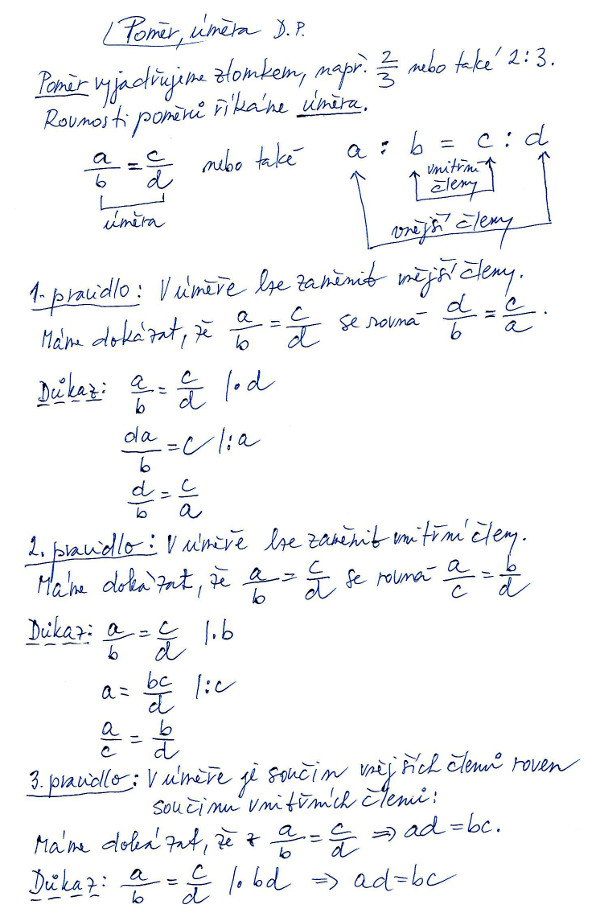 Poměr, úměra D.P.
Poměr vyjadřujeme zlomkem, např. 2/3 nebo také 2:3.
Rovnosti poměrů říkáme úměra.
a/b = c/d nebo také a : b = c : d
vnitřní
členy
úměra
vnější členy
1. pravidlo: V úměře lze zaměnit vnější členy.
Máme dokázat, že a/b = c/d se rovná d/b = c/a.
Důkaz: a/b = c/d /·d
da/b = c /:a
d/b = c/a
2. pravidlo: V úměře lze zaměnit vnitřní členy.
Máme dokázat, že a/b = c/d se rovná a/c = b/d
Důkaz: a/b = c/d /·b
a = bc/d /:c
a/c = b/d
3. pravidlo: V úměře je součin vnějších členů roven
součinu vnitřních členů:
Máme dokázat, že z a/b = c/d ⇒ ad = bc.
Důkaz: a/b = c/d /·bd ⇒ ad = bc